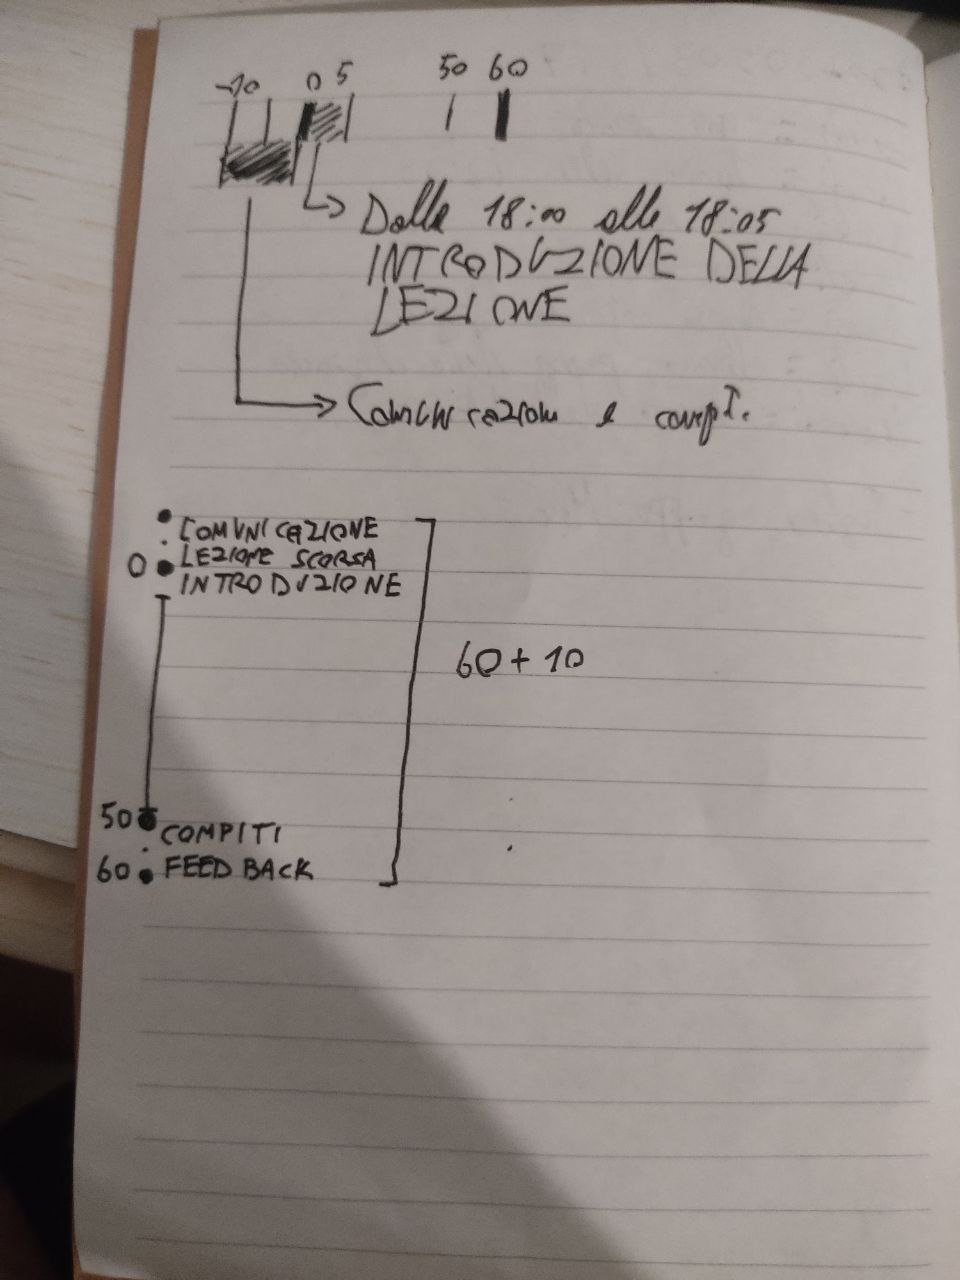 -10 0 5 50 60
Dalle 18:00 alle 18:05
INTRODUZIONE DELLA
LEZIONE
Comunicazioni e compiti.
COMUNICAZIONE
0 LEZIONE SCORSA
INTRODUZIONE
60 + 10
50 COMPITI
60 FEEDBACK